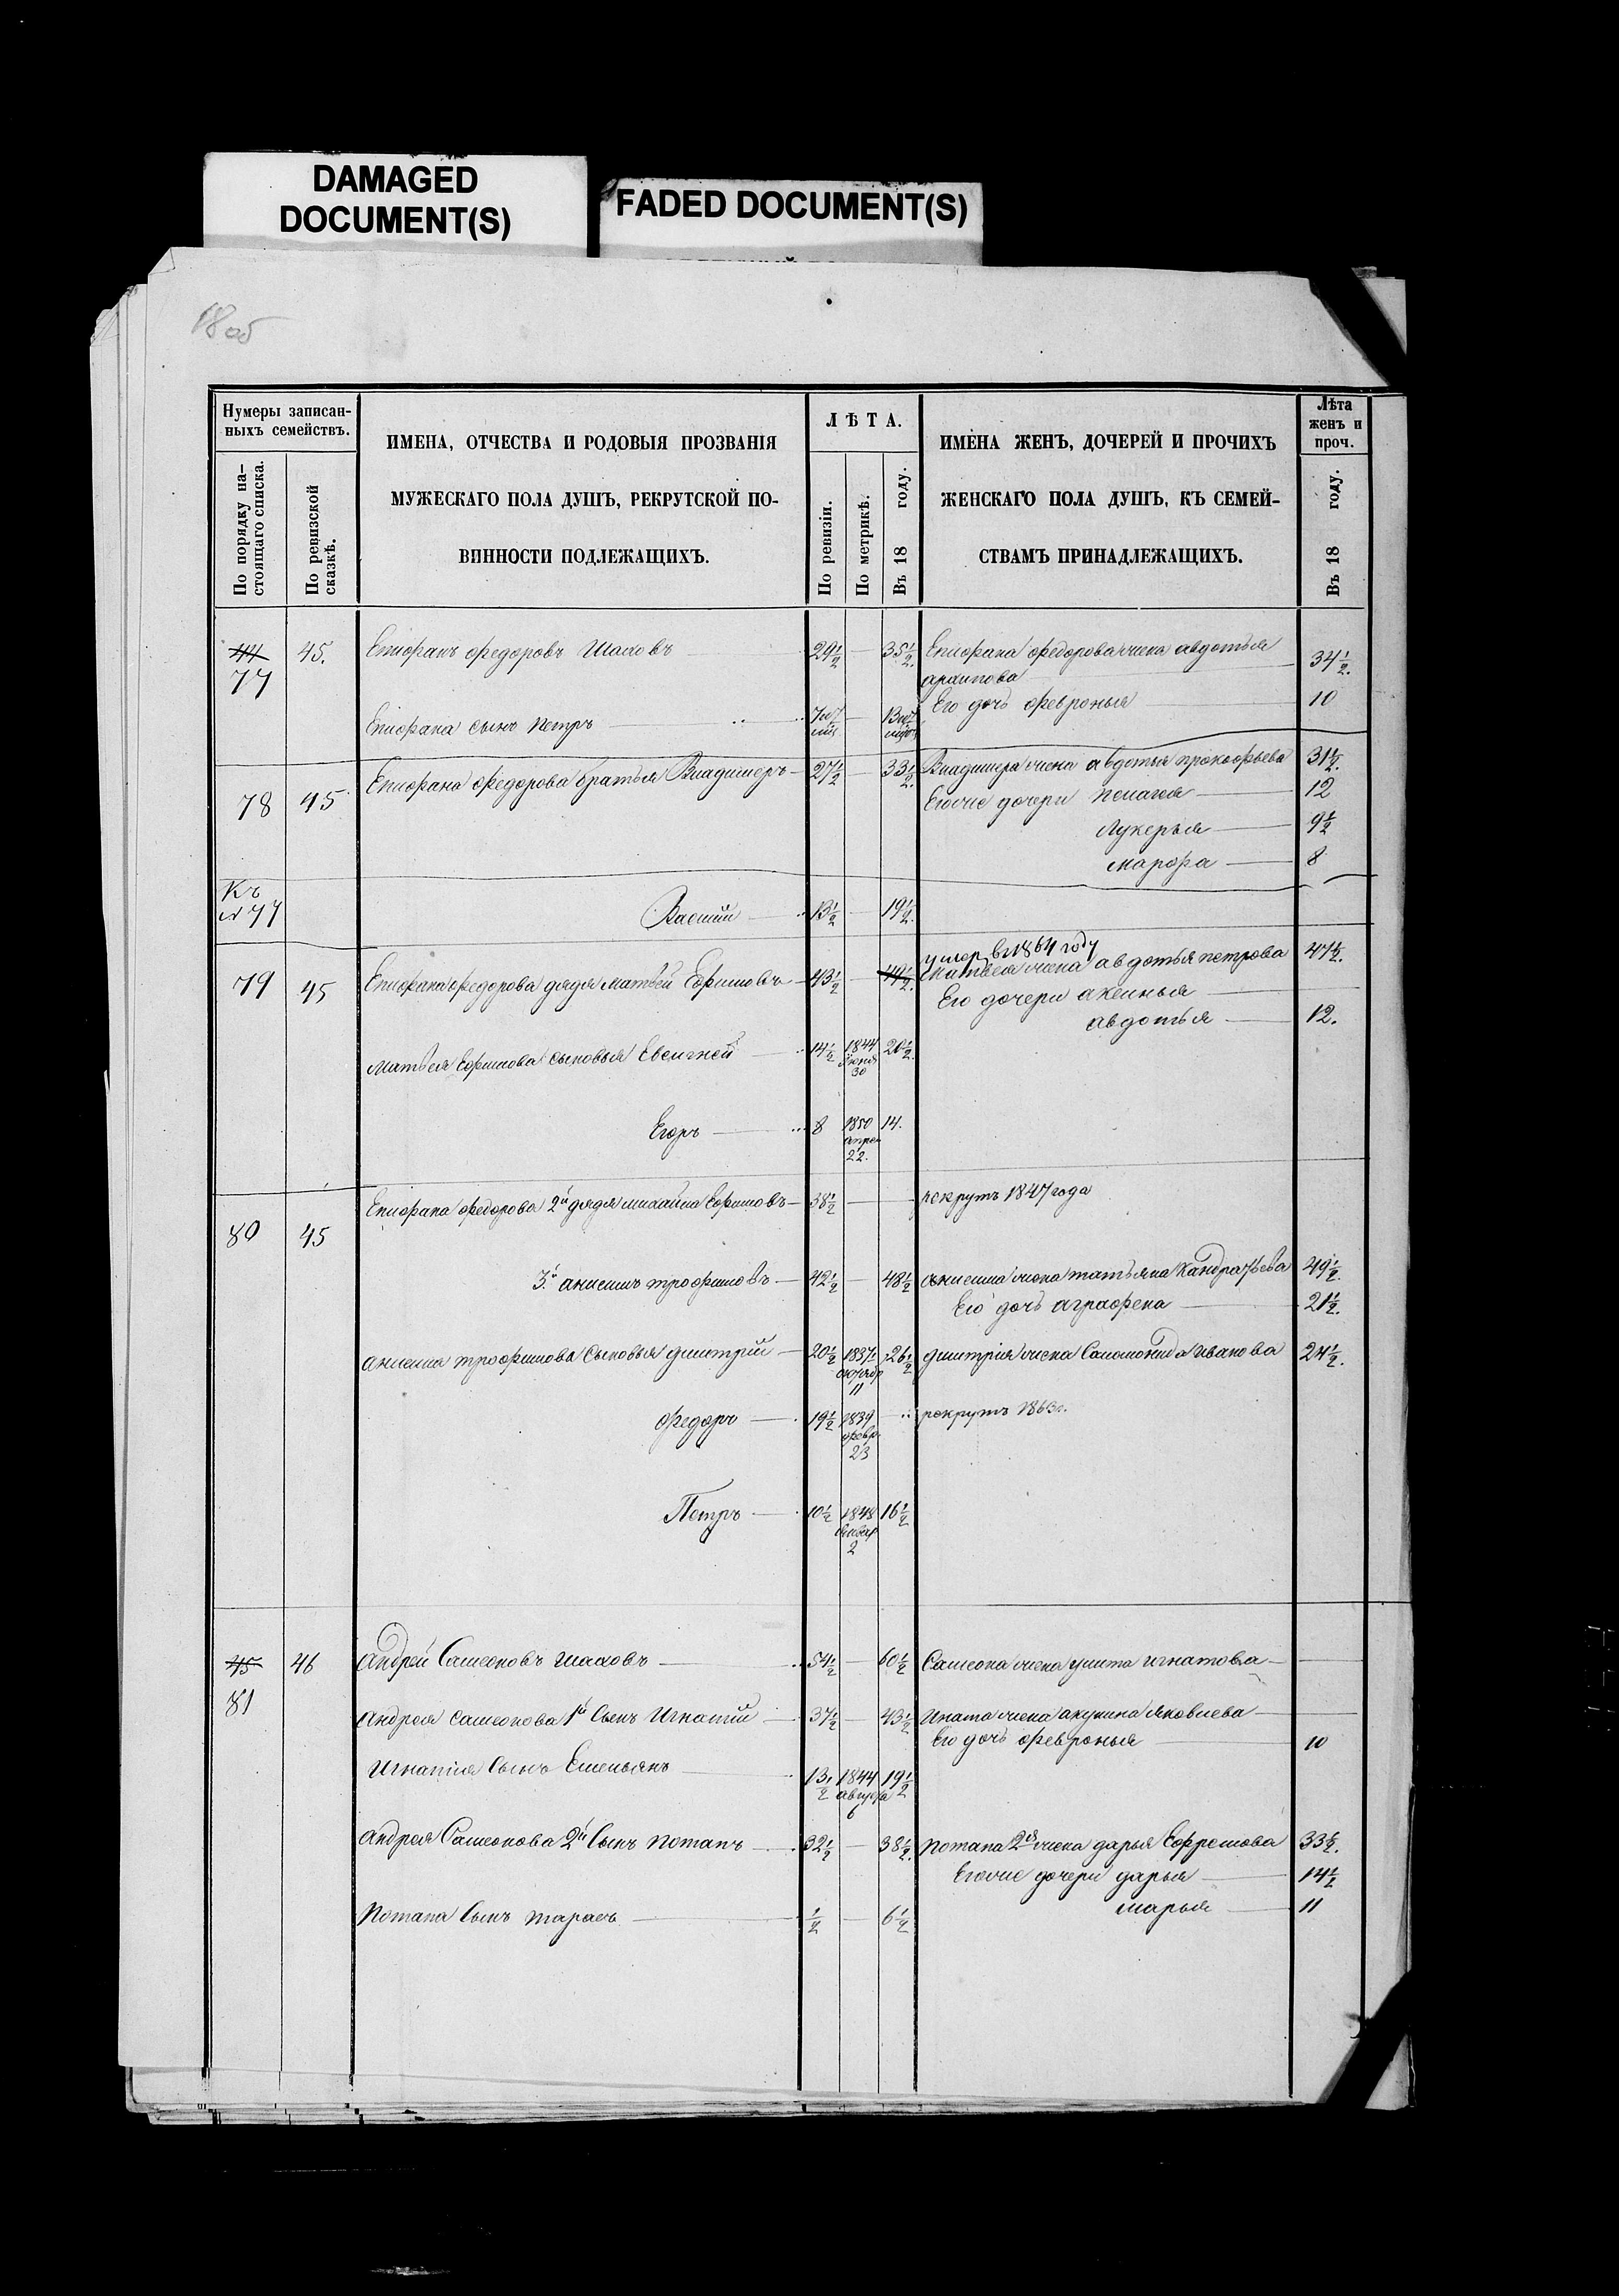 DAMAGED
DOCUMENT(S)
FADED DOCUMENT(S)
18 об
Нумеры записан-
ныхъ семействъ.
По порядку на-
стоящаго списка.
По ревизской
сказкѣ.
ИМЕНА, ОТЧЕСТВА И РОДОВЫЯ ПРОЗВАНІЯ
МУЖЕСКАГО ПОЛА ДУШЪ, РЕКРУТСКОЙ ПО-
ВИННОСТИ ПОДЛЕЖАЩИХЪ.
ЛѢТА.
По ревизіи.
По метрикѣ.
Въ 18 году.
ИМЕНА ЖЕНЪ, ДОЧЕРЕЙ И ПРОЧИХЪ
ЖЕНСКАГО ПОЛА ДУШЪ, КЪ СЕМЕЙ-
СТВАМЪ ПРИНАДЛЕЖАЩИХЪ.
Лѣта
женъ и
проч.
Въ 18 году.
44 45. Епифанъ федоровъ Шаховъ 29½ — 35½. Епифана федорова жена авдотья
77 архипова 34½.
Его дочь февронья 10
Епифана сынъ Петръ
78 45 Епифана федорова братья Владимеръ 27½ — 33½. Владимера жена авдотья прокофьева 31½.
Егоже дочери пелагея 12
Лукерья 9½
марфа 8
Къ
№ 77 Василий 13½ — 19½.
умер в 1864 году
79 45 Епифана федорова дядя матвей Ефимовъ 43½ — 49½. матвея жена авдотья петрова 47½.
Его дочери аксинья
авдотья 12.
матвея Ефимова сыновья Евсигней 14½ 1844 июня 30 20½.
Егоръ 8 1850 апрел 22. 14.
80 45 Епифана федорова 2й дядя михайла Ефимовъ 38½ — рекрутъ 1847 года
3й анисимъ трофимовъ 42½ — 48½ анисима жена татьяна Кандратьева 49½.
Его дочь аграфена 21½.
анисима трофимова Сыновья димитрий 20½ 1837 октябр 11 26½ димитрия жена Саламонида иванова 24½.
федоръ 19½ 1839 февр. 23 — рекрутъ 1863 г.
Петръ 10½ 1848 2 16½
45 46 андрей Самсоновъ шаховъ 54½ — 60½ Самсона жена улита игнатова —
81
андрея самсонова 1й Сынъ Игнатий 37½ — 43½ Игната жена акулина яковлева —
Его дочь февронья 10
Игнатия Сынъ Емельянъ 13½ 1844 августа 6 19½
андрея Самсонова 2й Сынъ потапъ 32½ — 38½. потапа 2я жена дарья Ефремова 33½.
Егоже дочери дарья 14½
марья 11
Потапа Сынъ тарасъ ½ — 6½